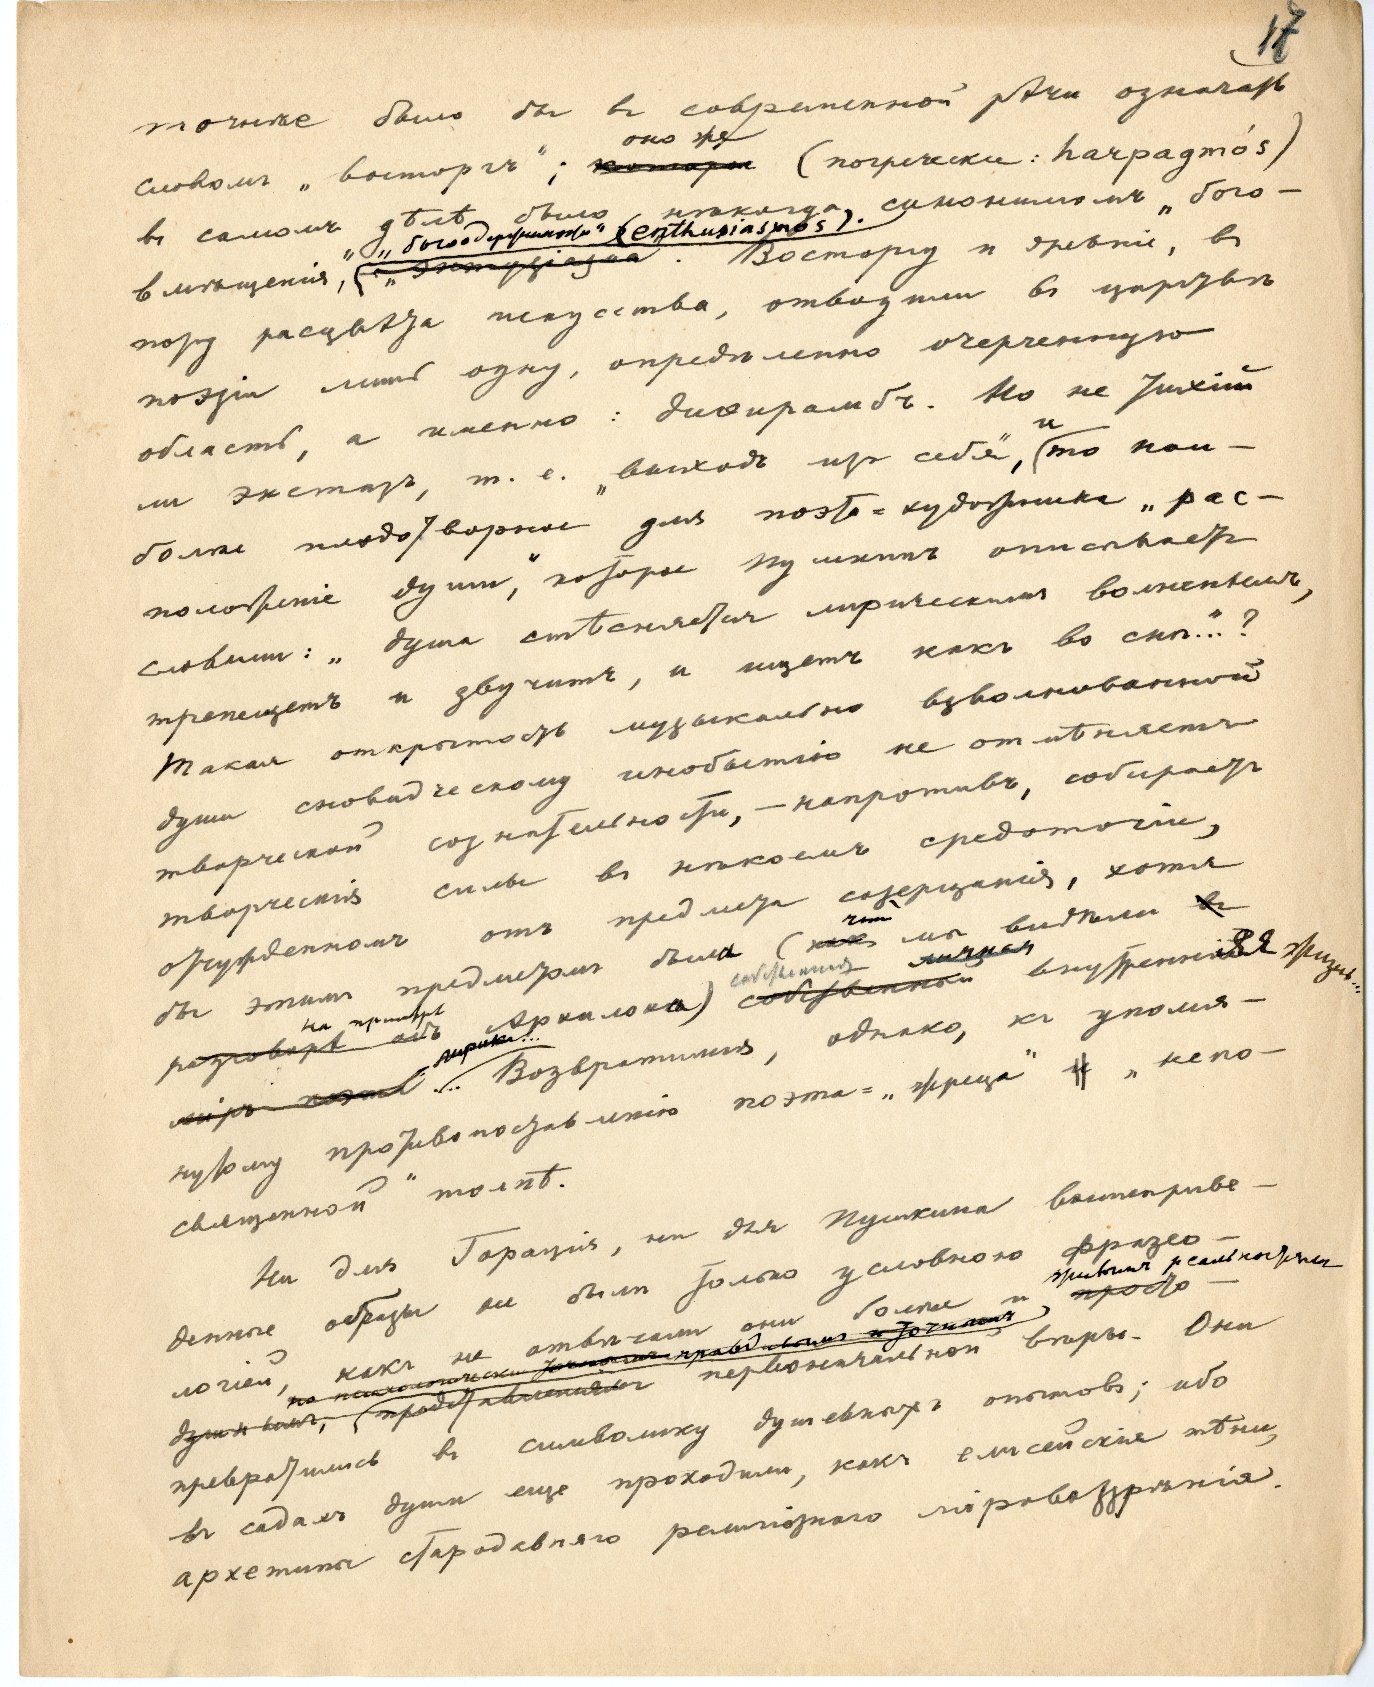 17
точнѣе было бы въ современной рѣчи означать
словомъ „восторгъ“; которое оно же (погречески: harpagmós)
въ самомъ дѣлѣ было нѣкогда синонимомъ „бого-
вмѣщенія“, „богоодержимости“ (enthusiasmós). „энтузіазма“. Восторгу и древніе, въ
пору расцвѣта искусства, отводили въ царствѣ
поэзіи лишь одну, опредѣленно очерченную
область, а именно: диѳирамбъ. Но не тихій
ли экстазъ, т. е. „выходъ изъ себя“, и то наи-
болѣе плодотворное для поэта=художника „рас-
положеніе души“, которое Пушкинъ описываетъ
словами: „душа стѣсняется лирическимъ волненьемъ,
трепещетъ и звучитъ, и ищетъ какъ во снѣ...“?
Такая открытость музыкально взволнованной
души сновидческому инобытію не отмѣняетъ
творческой сознательности, — напротивъ, собираетъ
творческія силы въ нѣкоемъ средоточіи,
отчужденномъ отъ предмета созерцанія, хотя
бы этимъ предметомъ была (какъ что мы видѣли въ
разговорѣ объ на примѣрѣ Архилоха) собственный собственная личная внутренняя жизнь...
міръ поэта лирика... Возвратимся, однако, къ упомя-
нутому противопоставленію поэта=„жреца“ и „непо-
священной“ толпѣ.
Ни для Горація, ни для Пушкина вышеприве-
денные образы не были только условною фразео-
логіей, какъ не отвѣчали они болѣе и живымъ реальностямъ просто-
душнымъ, представленіямъ первоначальной вѣры. Они
превратились въ символику душевныхъ опытовъ; ибо
въ садахъ души еще проходили, какъ елисейскія тѣни,
архетипы стародавняго религіознаго міровоззрѣнія.